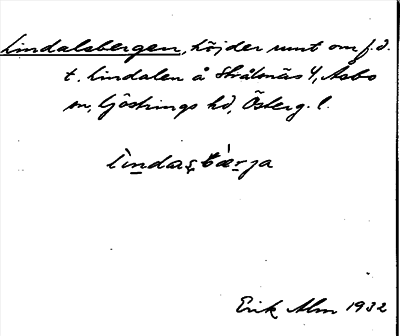 Lindalsbergen, höjder runt om f.d.
t. Lindalen å Strålsnäs 4, Åsbo
sn, Göstrings hd, Österg. l.
Erik Alm 1932